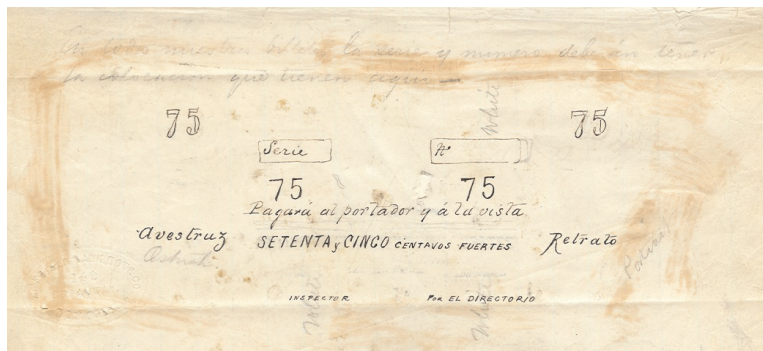 En todos nuestros billetes la serie y numero deberán tener,
la colocacion que tienen aqui —
75 75
Serie Nº
75 75
Pagará al portador y á la vista
Avestruz SETENTA y CINCO CENTAVOS FUERTES Retrato
Ostrich
INSPECTOR POR EL DIRECTORIO
White
White
White